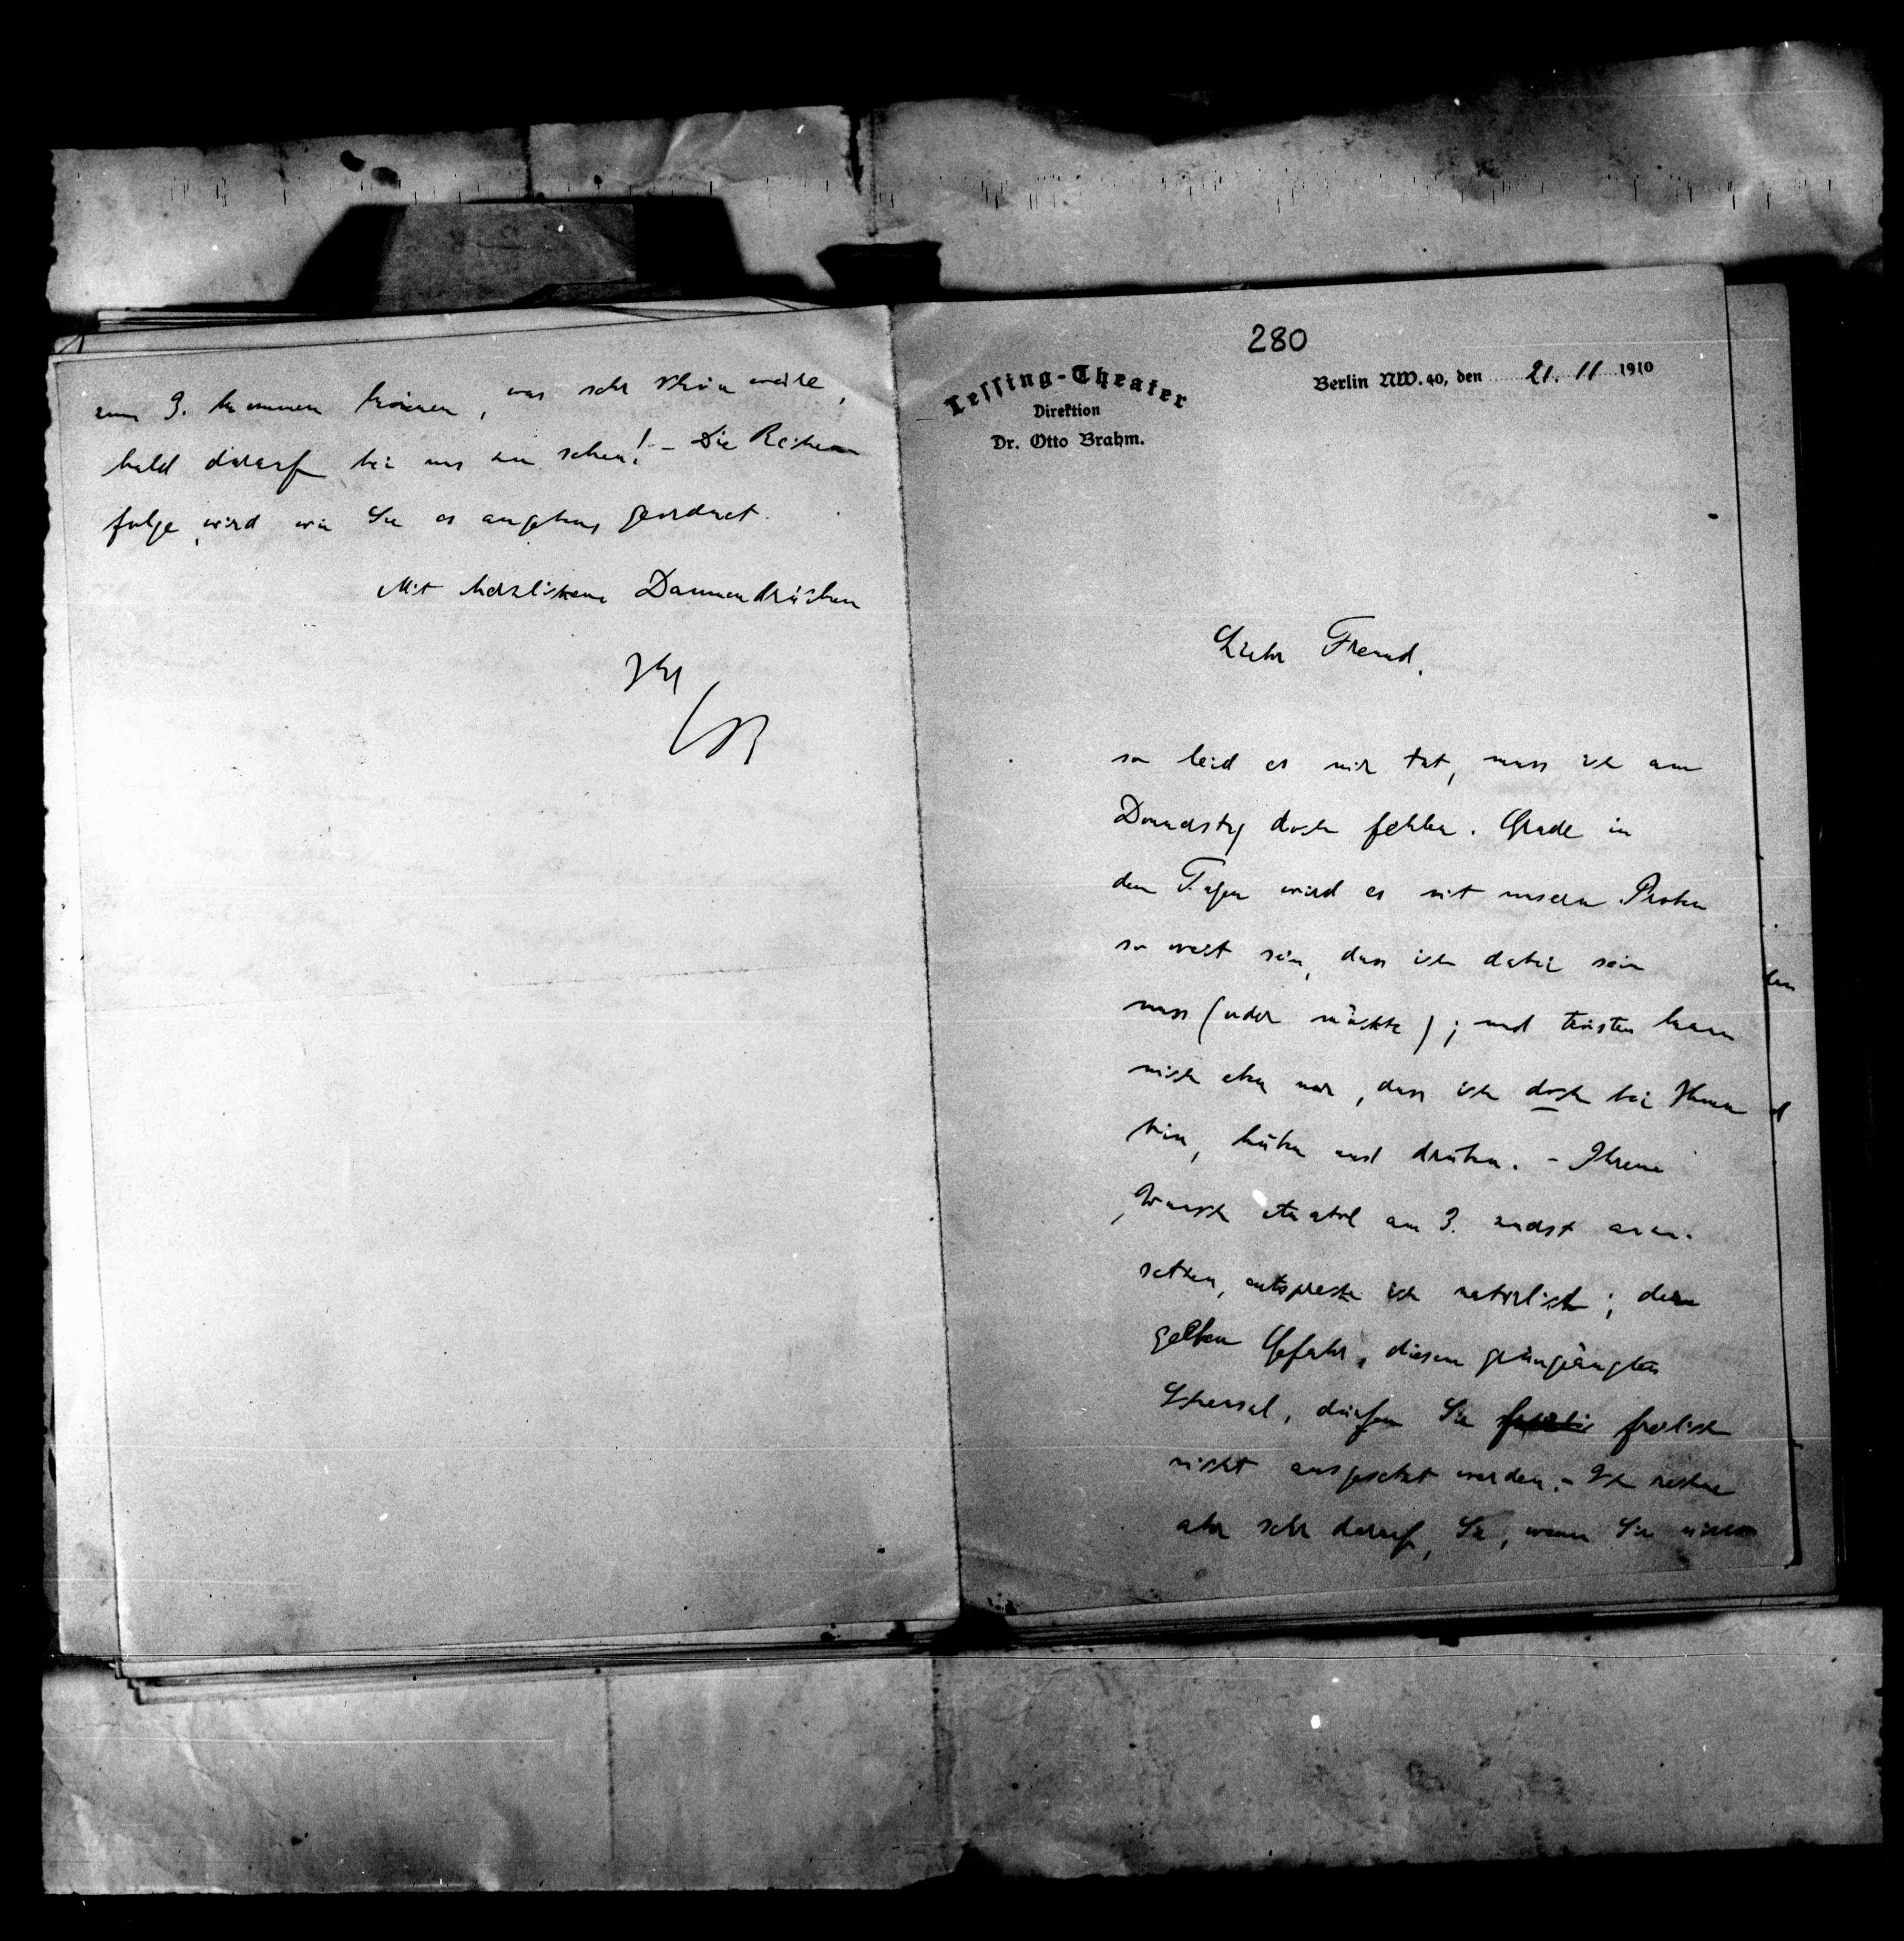 280
Lessing-Theater
Direktion
Dr. Otto Brahm.
Berlin NW. 40, den 21. 11 1910
Lieber Freund,
so leid es mir tut, muss ich am
Donnerstag doch fehlen. Grade in
den Tagen wird es mit unsern Proben
so weit sein, dass ich dabei sein
muss (oder möchte); und trösten kann
mich eben nur, dass ich doch bei Ihnen
bin, hüben und drüben. – Ihrem
Wunsch Anatol am 3. zuerst anzu-
setzen, entspreche ich natürlich; der
gelben Gefahr, diesem
Scheusal, dürfen Sie freilich
nicht ausgesetzt werden. – Ich rechne
aber sehr darauf, Sie, wenn Sie nicht
zum 3. kommen können, was sehr schön wäre,
bald darauf bei uns zu sehen! – Die Reihen
folge wird wie Sie es angeben geordnet.
Mit herzlichem Daumendrücken
Ihr
OB